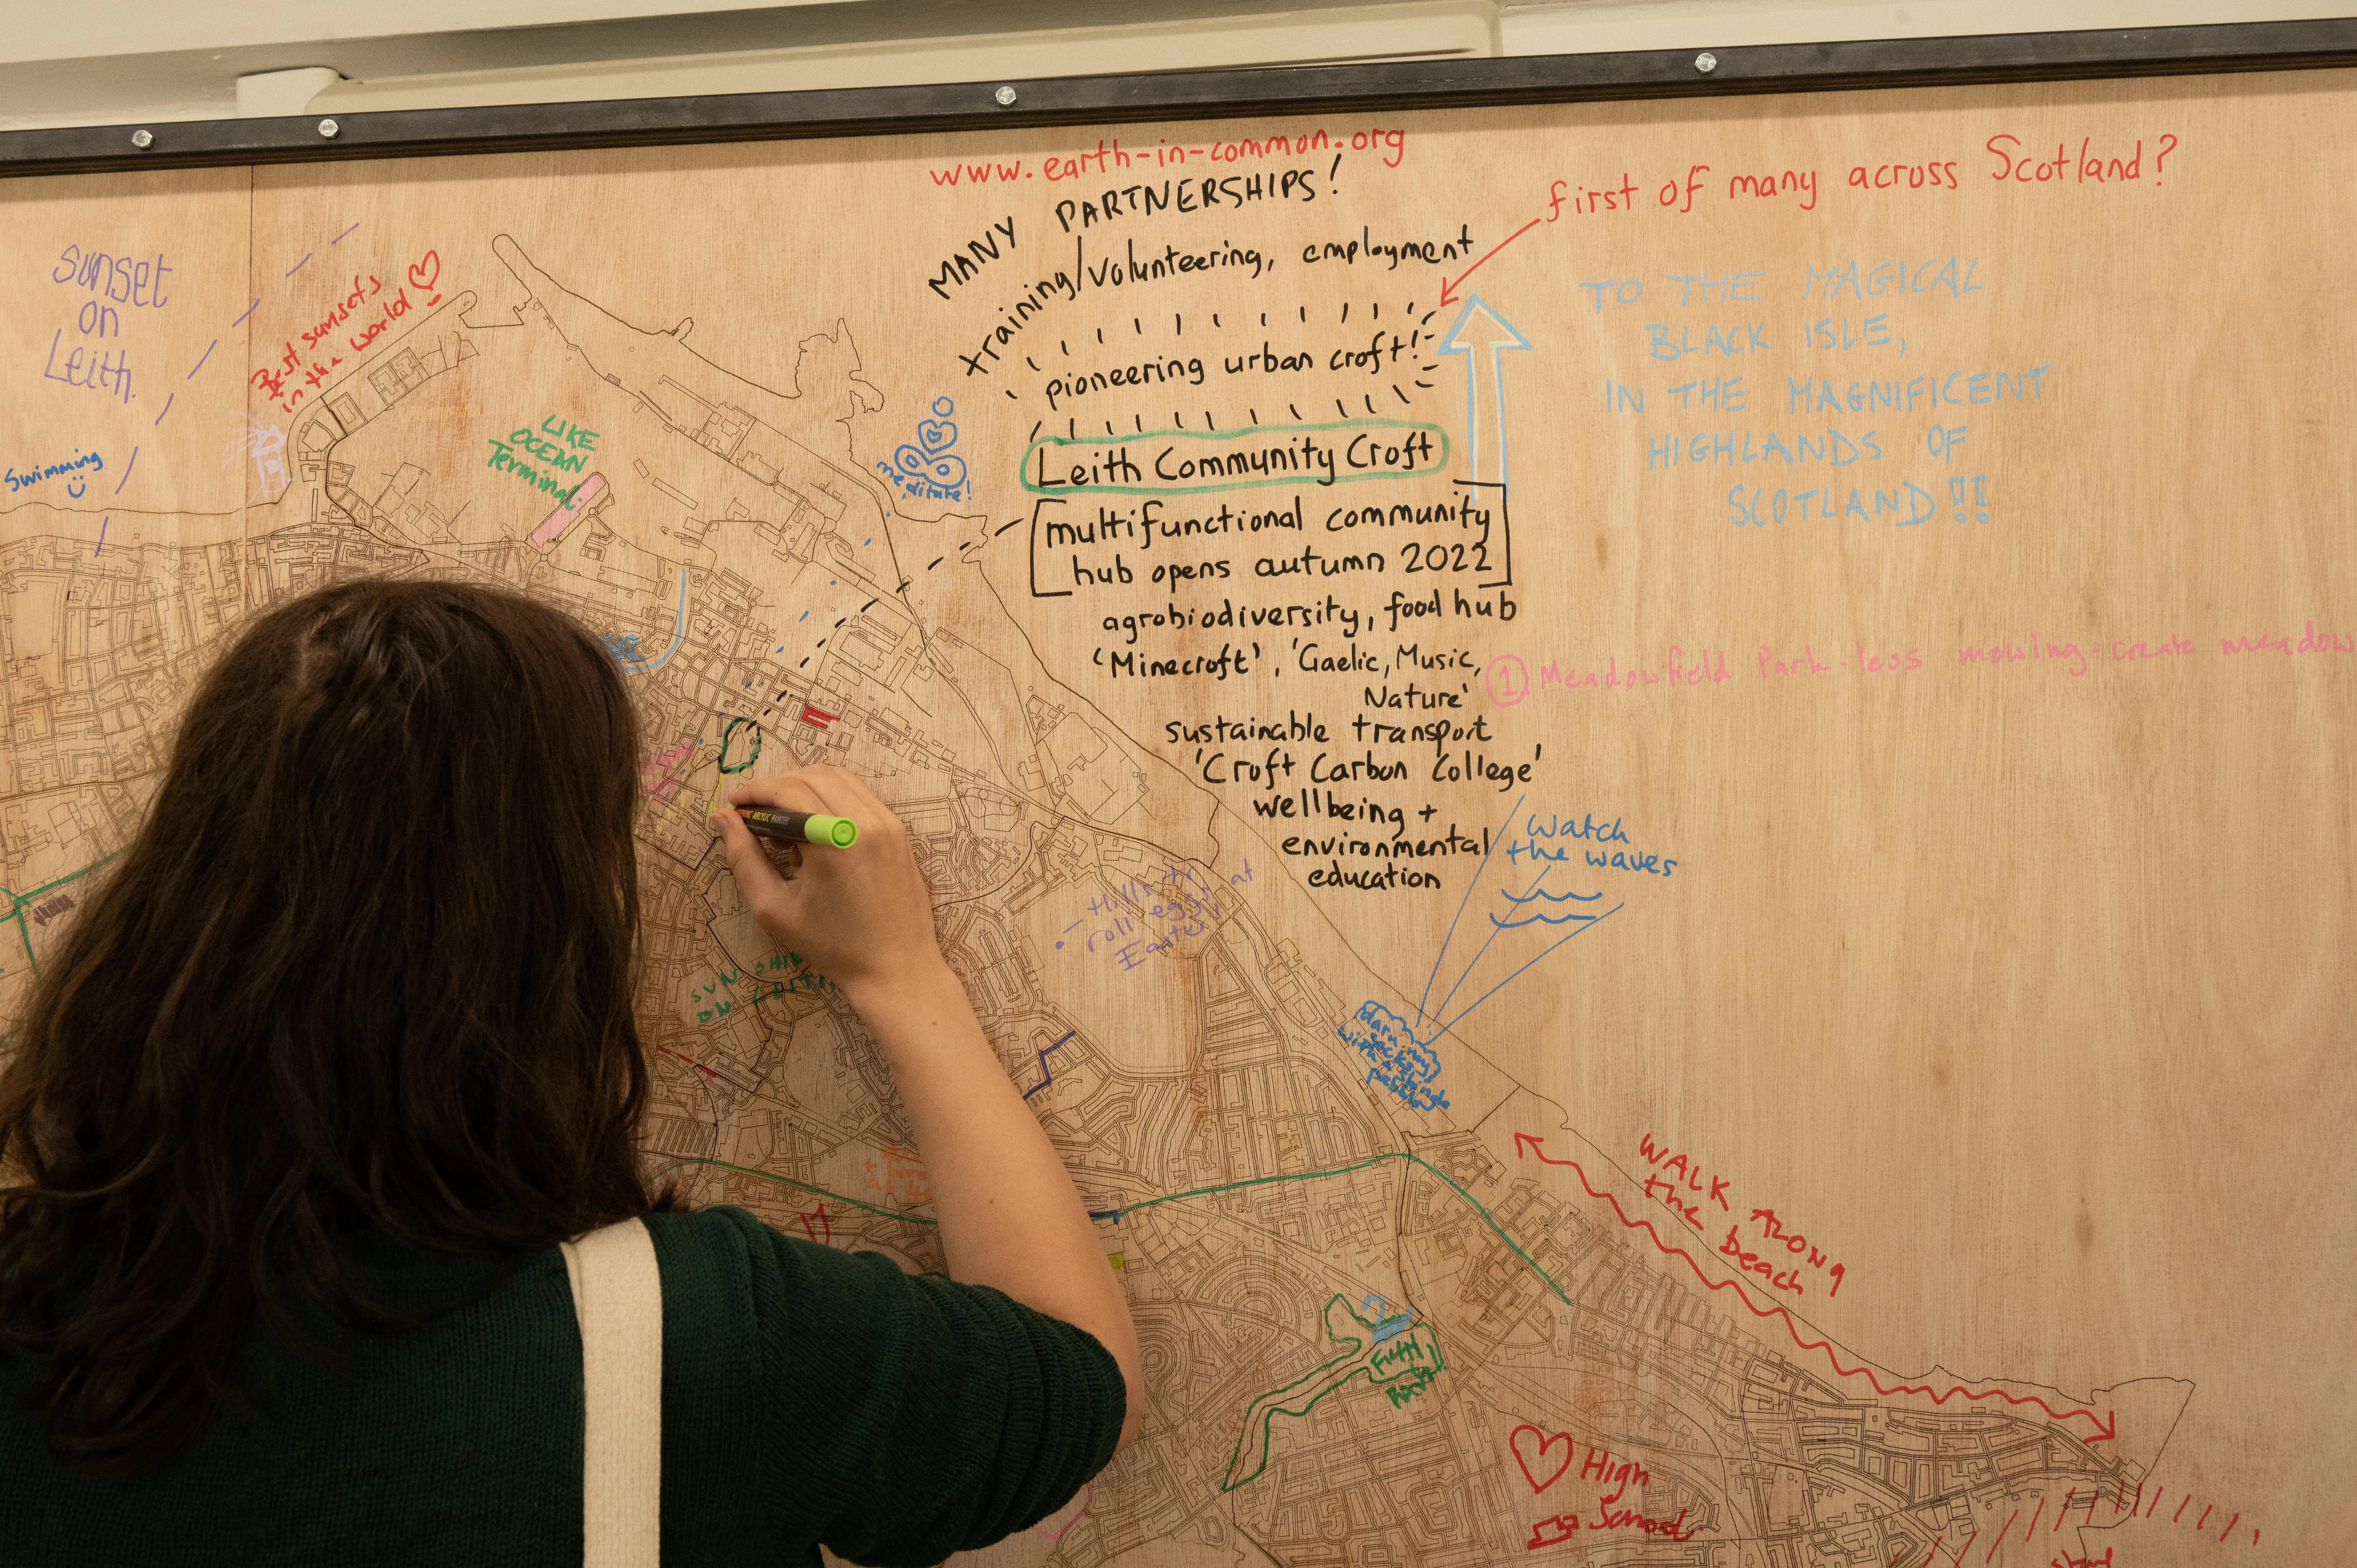 www.earth-in-common.org
MANY PARTNERSHIPS!
training/volunteering, employment
first of many across Scotland?
pioneering urban croft!
Leith Community Croft
[multifunctional community
hub opens autumn 2022]
agrobiodiversity, food hub
'Minecroft', 'Gaelic, Music,
Nature'
sustainable transport
'Croft Carbon College'
wellbeing +
environmental
education
TO THE MAGICAL
BLACK ISLE,
IN THE MAGNIFICENT
HIGHLANDS OF
SCOTLAND!!
① Meadowfield Park - less mowing - create meadow
Sunset
on
Leith.
Best sunsets
in the world
Swimming
LIKE
OCEAN
Terminal
meditate!
watch
the waves
Hills to
roll eggs at
Easter
SUNSHINE
ON
WALK ALONG
the beach
High
School